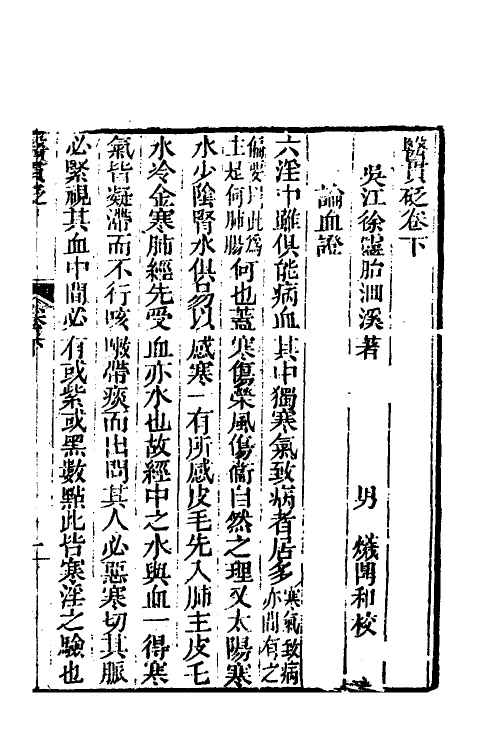 醫貫砭卷下
吳江徐靈胎洄溪著　男　爔鼎和校
論血證
六淫中雖俱能病血其中獨寒氣致病者居多寒氣致病亦間有之
偏要以此爲主是何肺腸何也蓋寒傷榮風傷衞自然之理又太陽寒
水少陰腎水俱易以感寒一有所感皮毛先入肺主皮毛
水冷金寒肺經先受血亦水也故經中之水與血一得寒
氣皆凝滯而不行咳嗽帶痰而出問其人必惡寒切其脈
必緊視其血中間必有或紫或黑數點此皆寒淫之驗也
醫貫砭